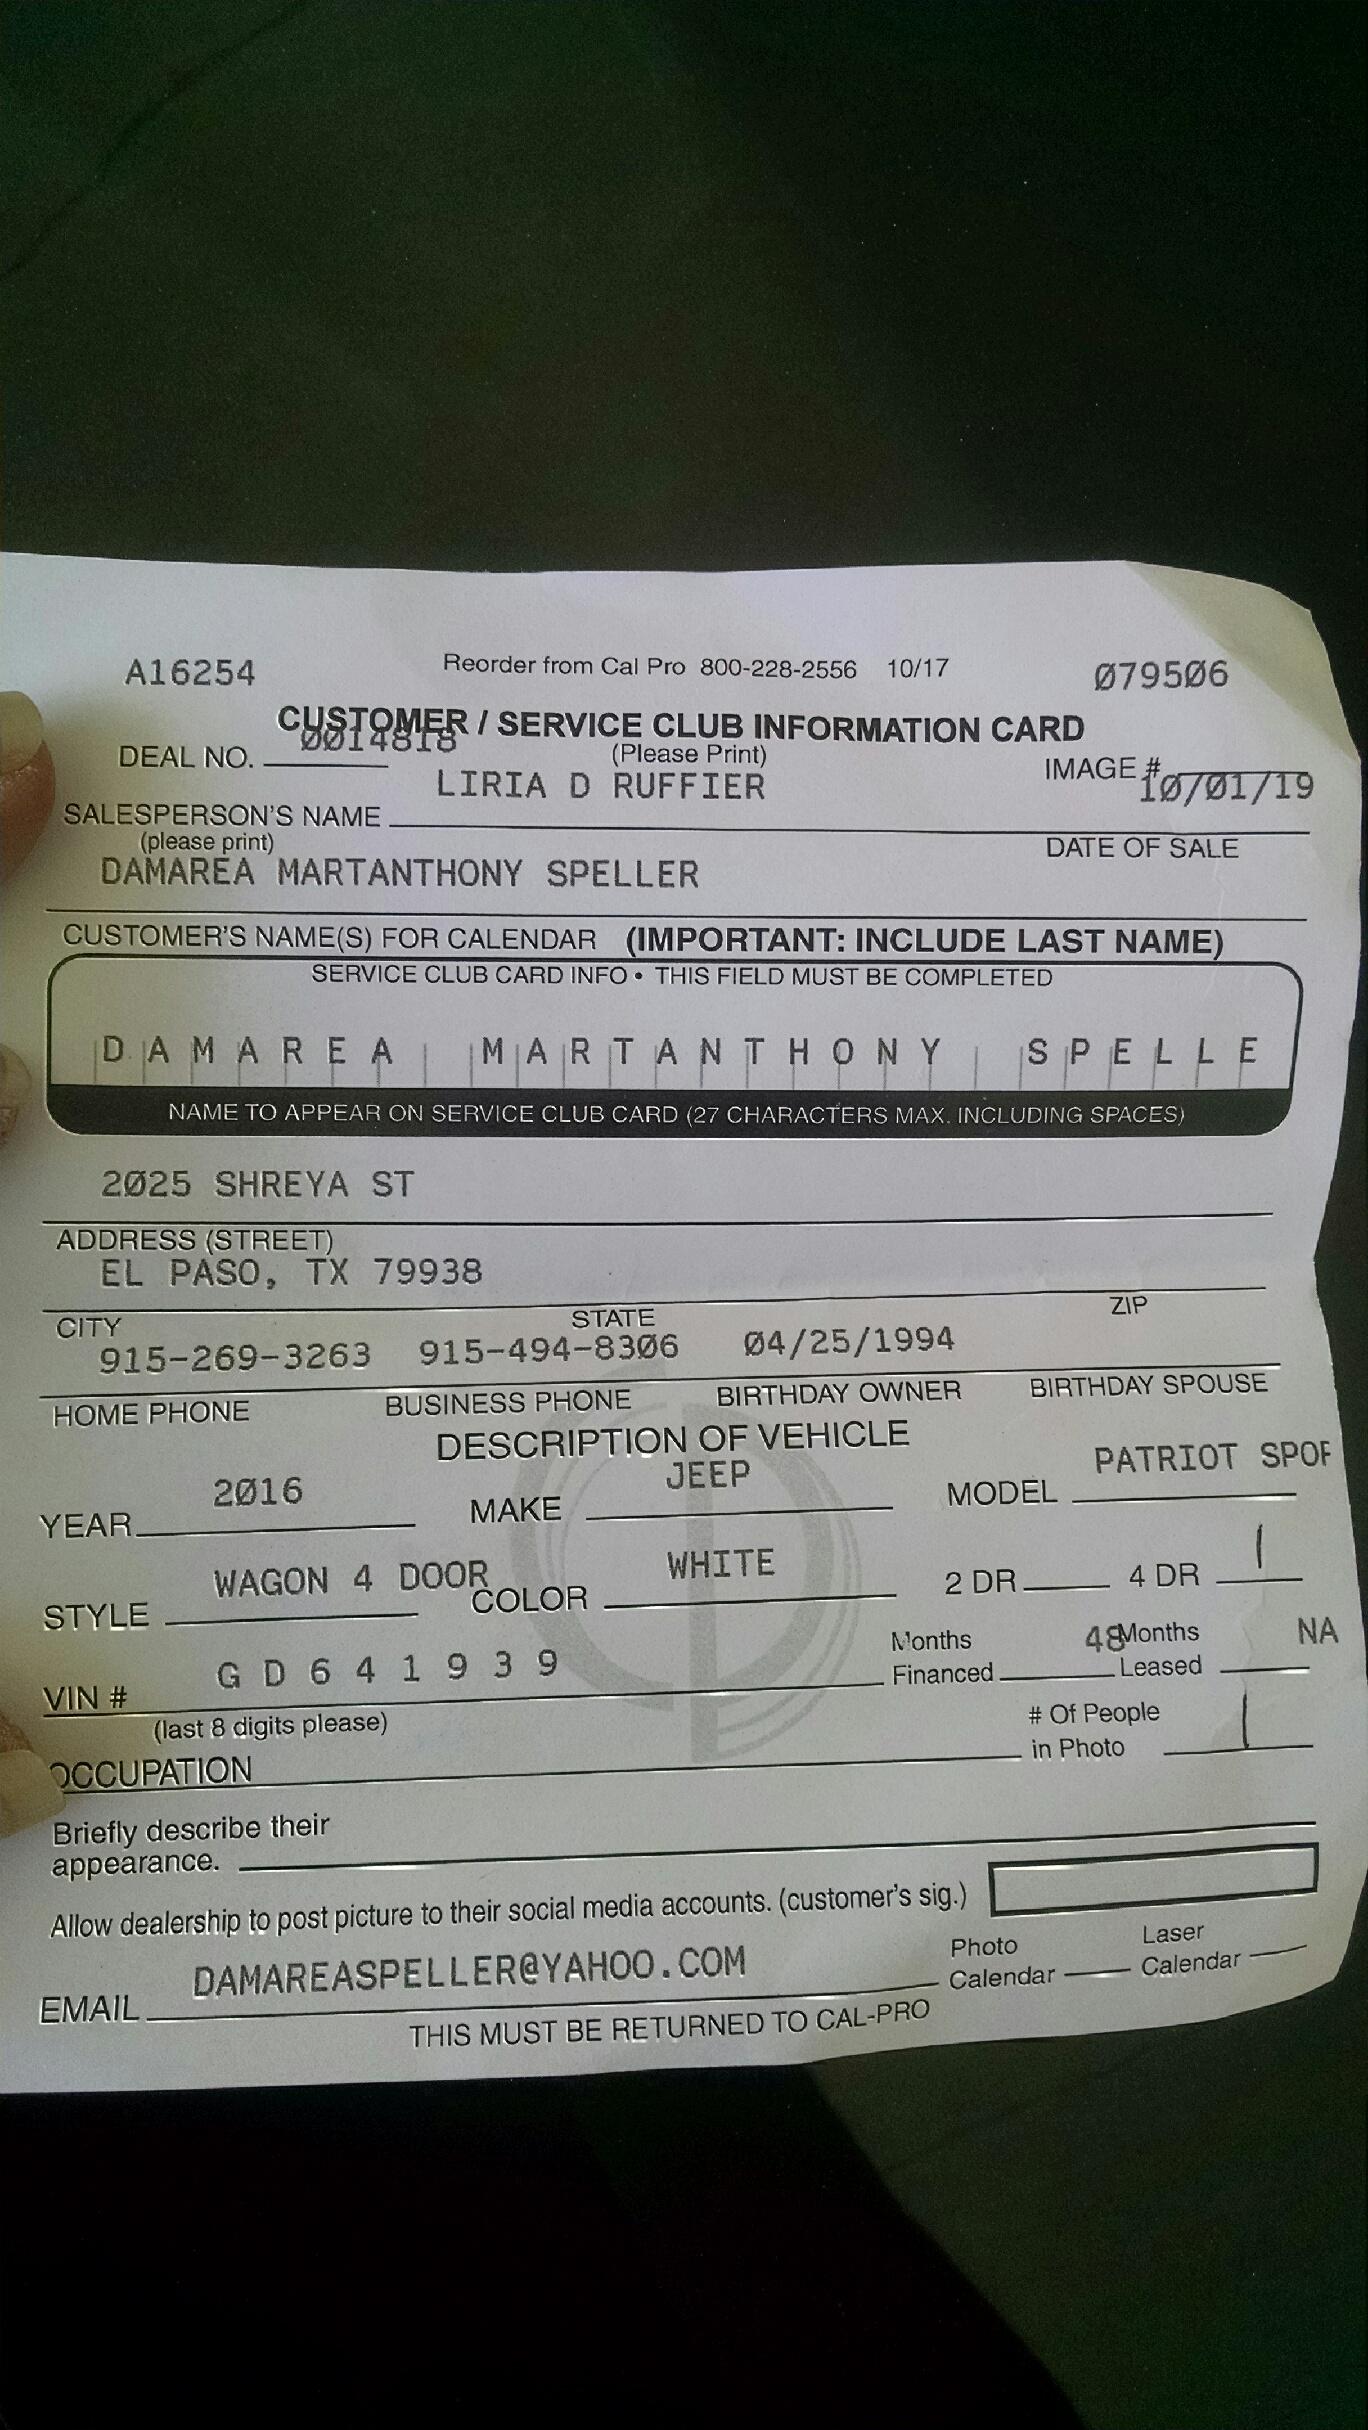 A16254 Reorder from Cal Pro 800-228-2556 10/17 079506
CUSTOMER / SERVICE CLUB INFORMATION CARD
DEAL NO. 0014818 (Please Print) IMAGE #
SALESPERSON'S NAME LIRIA D RUFFIER 10/01/19
(please print) DATE OF SALE
DAMAREA MARTANTHONY SPELLER
CUSTOMER'S NAME(S) FOR CALENDAR (IMPORTANT: INCLUDE LAST NAME)
SERVICE CLUB CARD INFO • THIS FIELD MUST BE COMPLETED
DAMAREA MARTANTHONY SPELLE
NAME TO APPEAR ON SERVICE CLUB CARD (27 CHARACTERS MAX. INCLUDING SPACES)
2025 SHREYA ST
ADDRESS (STREET)
EL PASO, TX 79938
CITY STATE ZIP
915-269-3263 915-494-8306 04/25/1994
HOME PHONE BUSINESS PHONE BIRTHDAY OWNER BIRTHDAY SPOUSE
DESCRIPTION OF VEHICLE
YEAR 2016 MAKE JEEP MODEL PATRIOT SPOR
STYLE WAGON 4 DOOR COLOR WHITE 2 DR 4 DR |
VIN # G D 6 4 1 9 3 9 Months Financed 48 Months Leased NA
(last 8 digits please) # Of People
OCCUPATION in Photo |
Briefly describe their
appearance.
Allow dealership to post picture to their social media accounts. (customer's sig.)
EMAIL DAMAREASPELLER@YAHOO.COM Photo Calendar Laser Calendar
THIS MUST BE RETURNED TO CAL-PRO